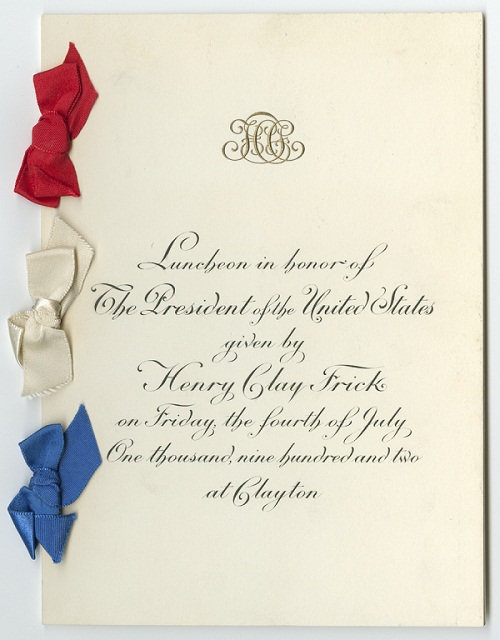 HCF
Luncheon in honor of
The President of the United States
given by
Henry Clay Frick
on Friday, the fourth of July
One thousand, nine hundred and two
at Clayton